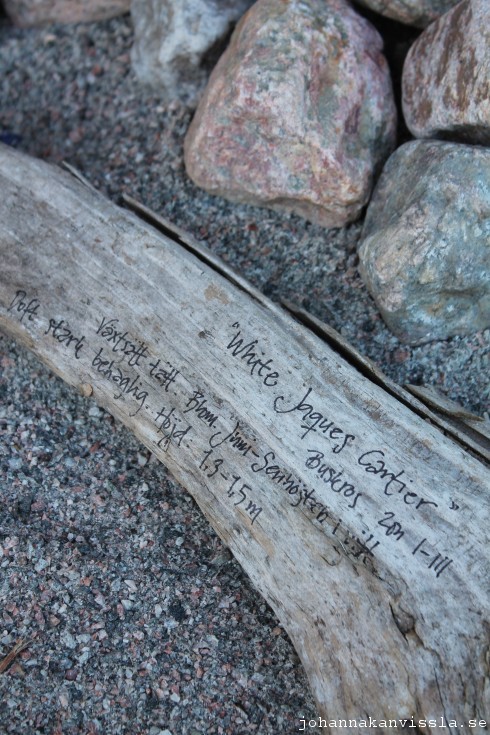 "White Jaques Cartier"
Buskros Zon I-III
Växtsätt tätt. Blom. Juni-Senhösten i vitt
Doft stark behaglig. Höjd. 1.3-1.5m
johannakanvissla.se